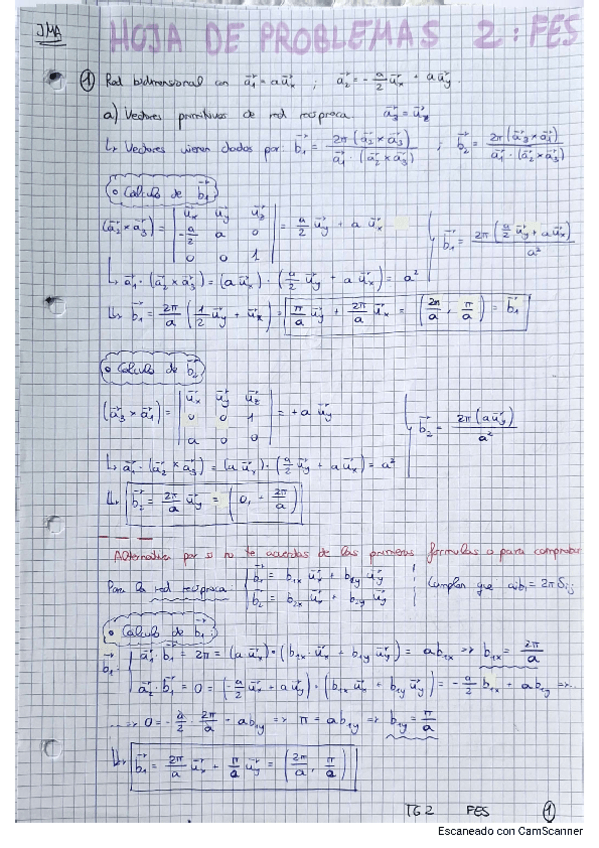 JMA
HOJA DE PROBLEMAS 2: FES
① Red bidimensional con a⃗₁ = a u⃗ₓ ; a⃗₂ = -a/2 u⃗ₓ + a u⃗ᵧ.
a) Vectores primitivos de red recíproca. a⃗₃ = u⃗_z
↳ Vectores vienen dados por: b⃗₁ = 2π(a⃗₂ × a⃗₃) / a⃗₁ · (a⃗₂ × a⃗₃) ; b⃗₂ = 2π(a⃗₃ × a⃗₁) / a⃗₁ · (a⃗₂ × a⃗₃)
• Cálculo de b⃗₁
(a⃗₂ × a⃗₃) = | u⃗ₓ u⃗ᵧ u⃗_z | -a/2 a 0 | 0 0 1 | = a/2 u⃗ᵧ + a u⃗ₓ
b⃗₁ = 2π(a/2 u⃗ᵧ + a u⃗ₓ) / a²
↳ a⃗₁ · (a⃗₂ × a⃗₃) = (a u⃗ₓ) · (a/2 u⃗ᵧ + a u⃗ₓ) = a²
↳ b⃗₁ = 2π/a (1/2 u⃗ᵧ + u⃗ₓ) = π/a u⃗ᵧ + 2π/a u⃗ₓ = (2π/a, π/a) = b⃗₁
• Cálculo de b⃗₂
(a⃗₃ × a⃗₁) = | u⃗ₓ u⃗ᵧ u⃗_z | 0 0 1 | a 0 0 | = +a u⃗ᵧ
b⃗₂ = 2π(a u⃗ᵧ) / a²
↳ a⃗₁ · (a⃗₂ × a⃗₃) = (a u⃗ₓ) · (a/2 u⃗ᵧ + a u⃗ₓ) = a²
↳ b⃗₂ = 2π/a u⃗ᵧ = (0, 2π/a)
Alternativa por si no te acuerdas de las primeras fórmulas o para comprobar
Para la red recíproca { b⃗₁ = b₁ₓ u⃗ₓ + b₁ᵧ u⃗ᵧ
b⃗₂ = b₂ₓ u⃗ₓ + b₂ᵧ u⃗ᵧ } Cumplan que aᵢbⱼ = 2πδᵢⱼ
• Cálculo de b⃗₁
b⃗₁ { a⃗₁ · b⃗₁ = 2π = (a u⃗ₓ) · (b₁ₓ u⃗ₓ + b₁ᵧ u⃗ᵧ) = a b₁ₓ ⇒ b₁ₓ = 2π/a
a⃗₂ · b⃗₁ = 0 = (-a/2 u⃗ₓ + a u⃗ᵧ) · (b₁ₓ u⃗ₓ + b₁ᵧ u⃗ᵧ) = -a/2 b₁ₓ + a b₁ᵧ ⇒
...⇒ 0 = -a/2 · 2π/a + a b₁ᵧ ⇒ π = a b₁ᵧ ⇒ b₁ᵧ = π/a
↳ b⃗₁ = 2π/a u⃗ₓ + π/a u⃗ᵧ = (2π/a, π/a)
TG2 FES ①
Escaneado con CamScanner